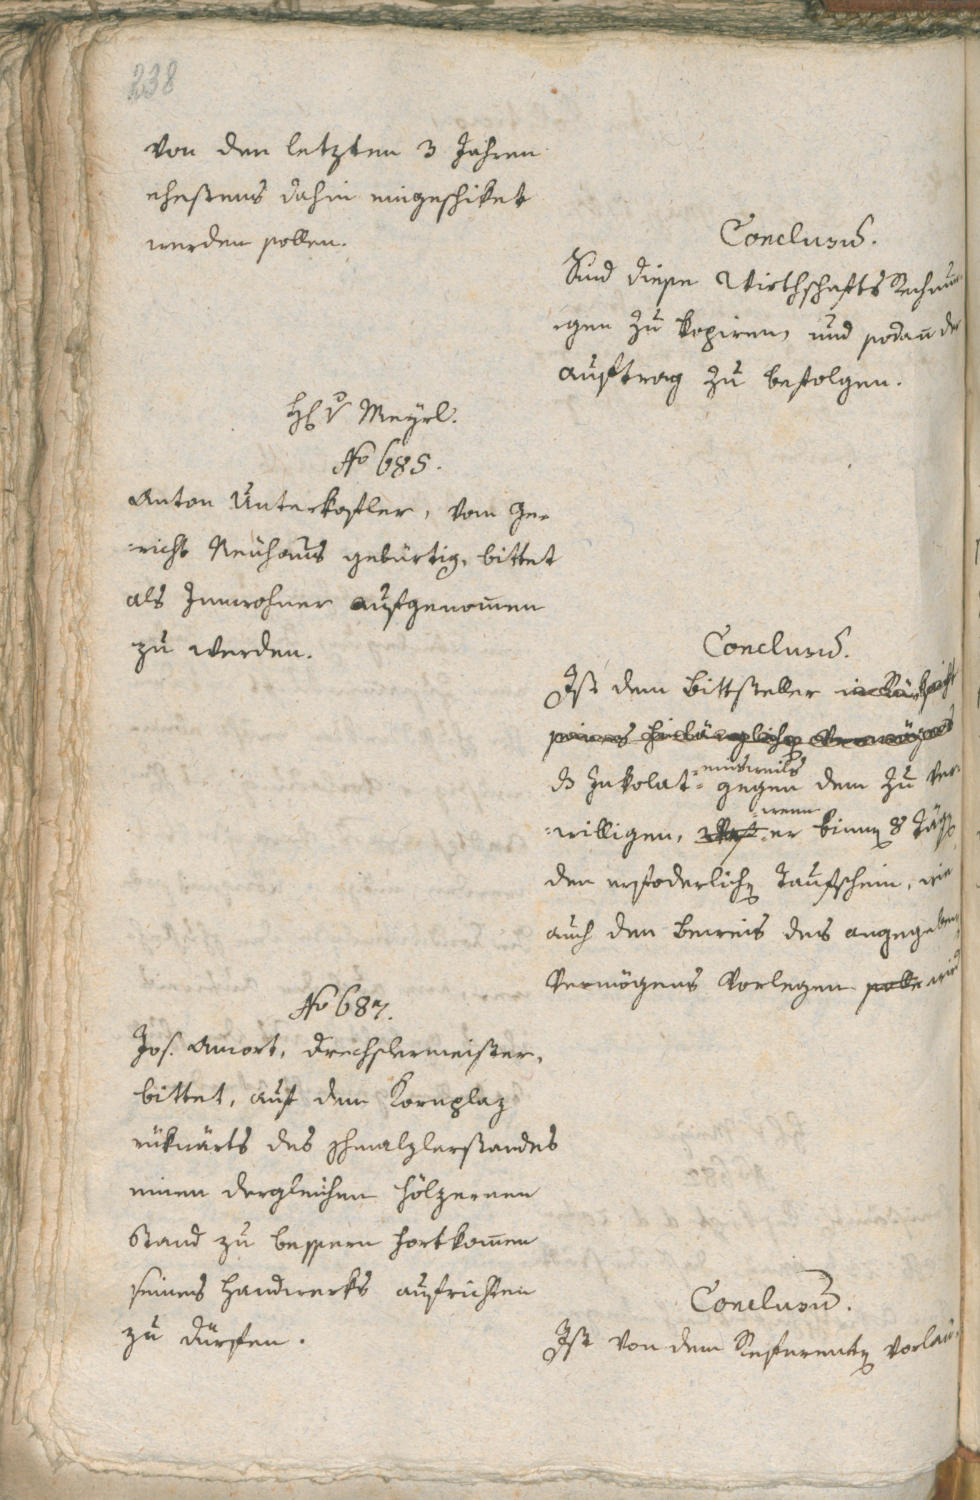 238
von den letzten 3 Jahren
ehestens dahin eingeschiket
werden sollen.
Conclusum.
Sind diese Wirthschafts Rechnun-
-gen zu kopiren, und sodann der
auftrag zu befolgen.
H. v Meyrl.
No 685.
Anton Unterkofler, vom Ge-
-richt Neuhaus gebürtig, bittet
als Innwohner aufgenommen
zu werden.
Conclusum.
Ist dem Bittsteller in Rüksicht
seines hinlänglichen Vermögens
ds Inkolat einsweils gegen dem zu ver-
-willigen, wenn er binnen 8 Tägen
den erfoderlichen Taufschein, wie
auch den Beweis des angegebenen
Vermögens vorlegen solle wird
No 687.
Jos. Amort, Drechslermeister,
bittet, auf dem Kornplaz
rükwärts des Schmalzlerstandes
einen dergleichen hölzernen
Stand zu bessern Fortkommen
seines Handwerks aufrichten
zu dürfen.
Conclusum.
Ist von dem Referenten vorlau-